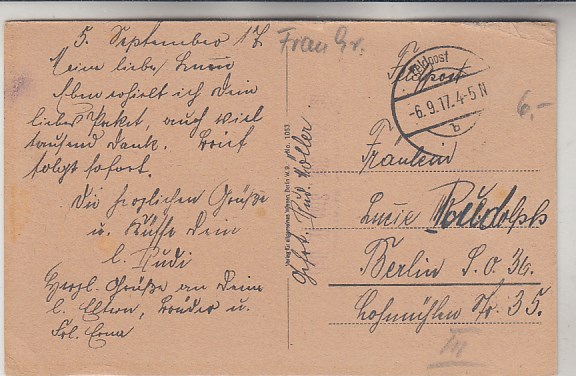 5. September 17
Meine liebe Lucie
Eben erhielt ich Dein
liebes Paket, auch viel
tausend Dank. Brief
folgt sofort.
Die herzlichen Grüße
u. Küsse Dein
l. Rudi
Herzl. Grüße an Deine
l. Eltern, Brüder u.
Frl. Erna
Frau Gr.
Feldpost
Feldpost
-6.9.17.4-5N
6.-
Fräulein
Lucie Rudolph
Berlin S.O. 36.
Lohmühlen Str. 35.
Gefrt. Rud. Köller
No. 1063